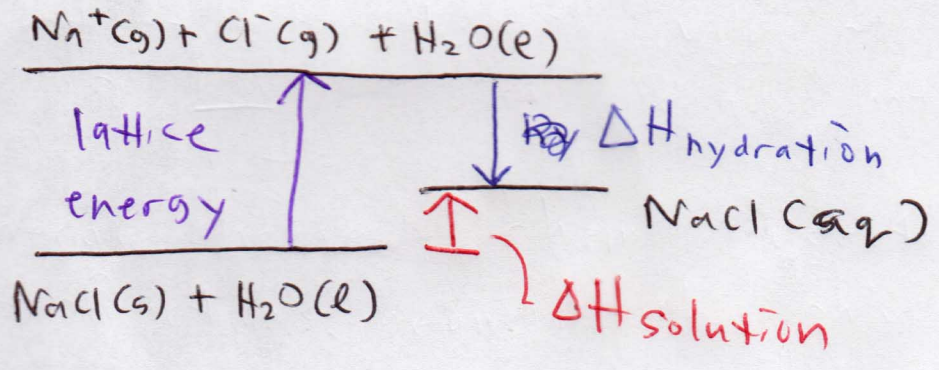 Na⁺(g) + Cl⁻(g) + H₂O(l)
lattice
energy
ΔHhydration
NaCl (aq)
NaCl(s) + H₂O(l)
ΔHsolution